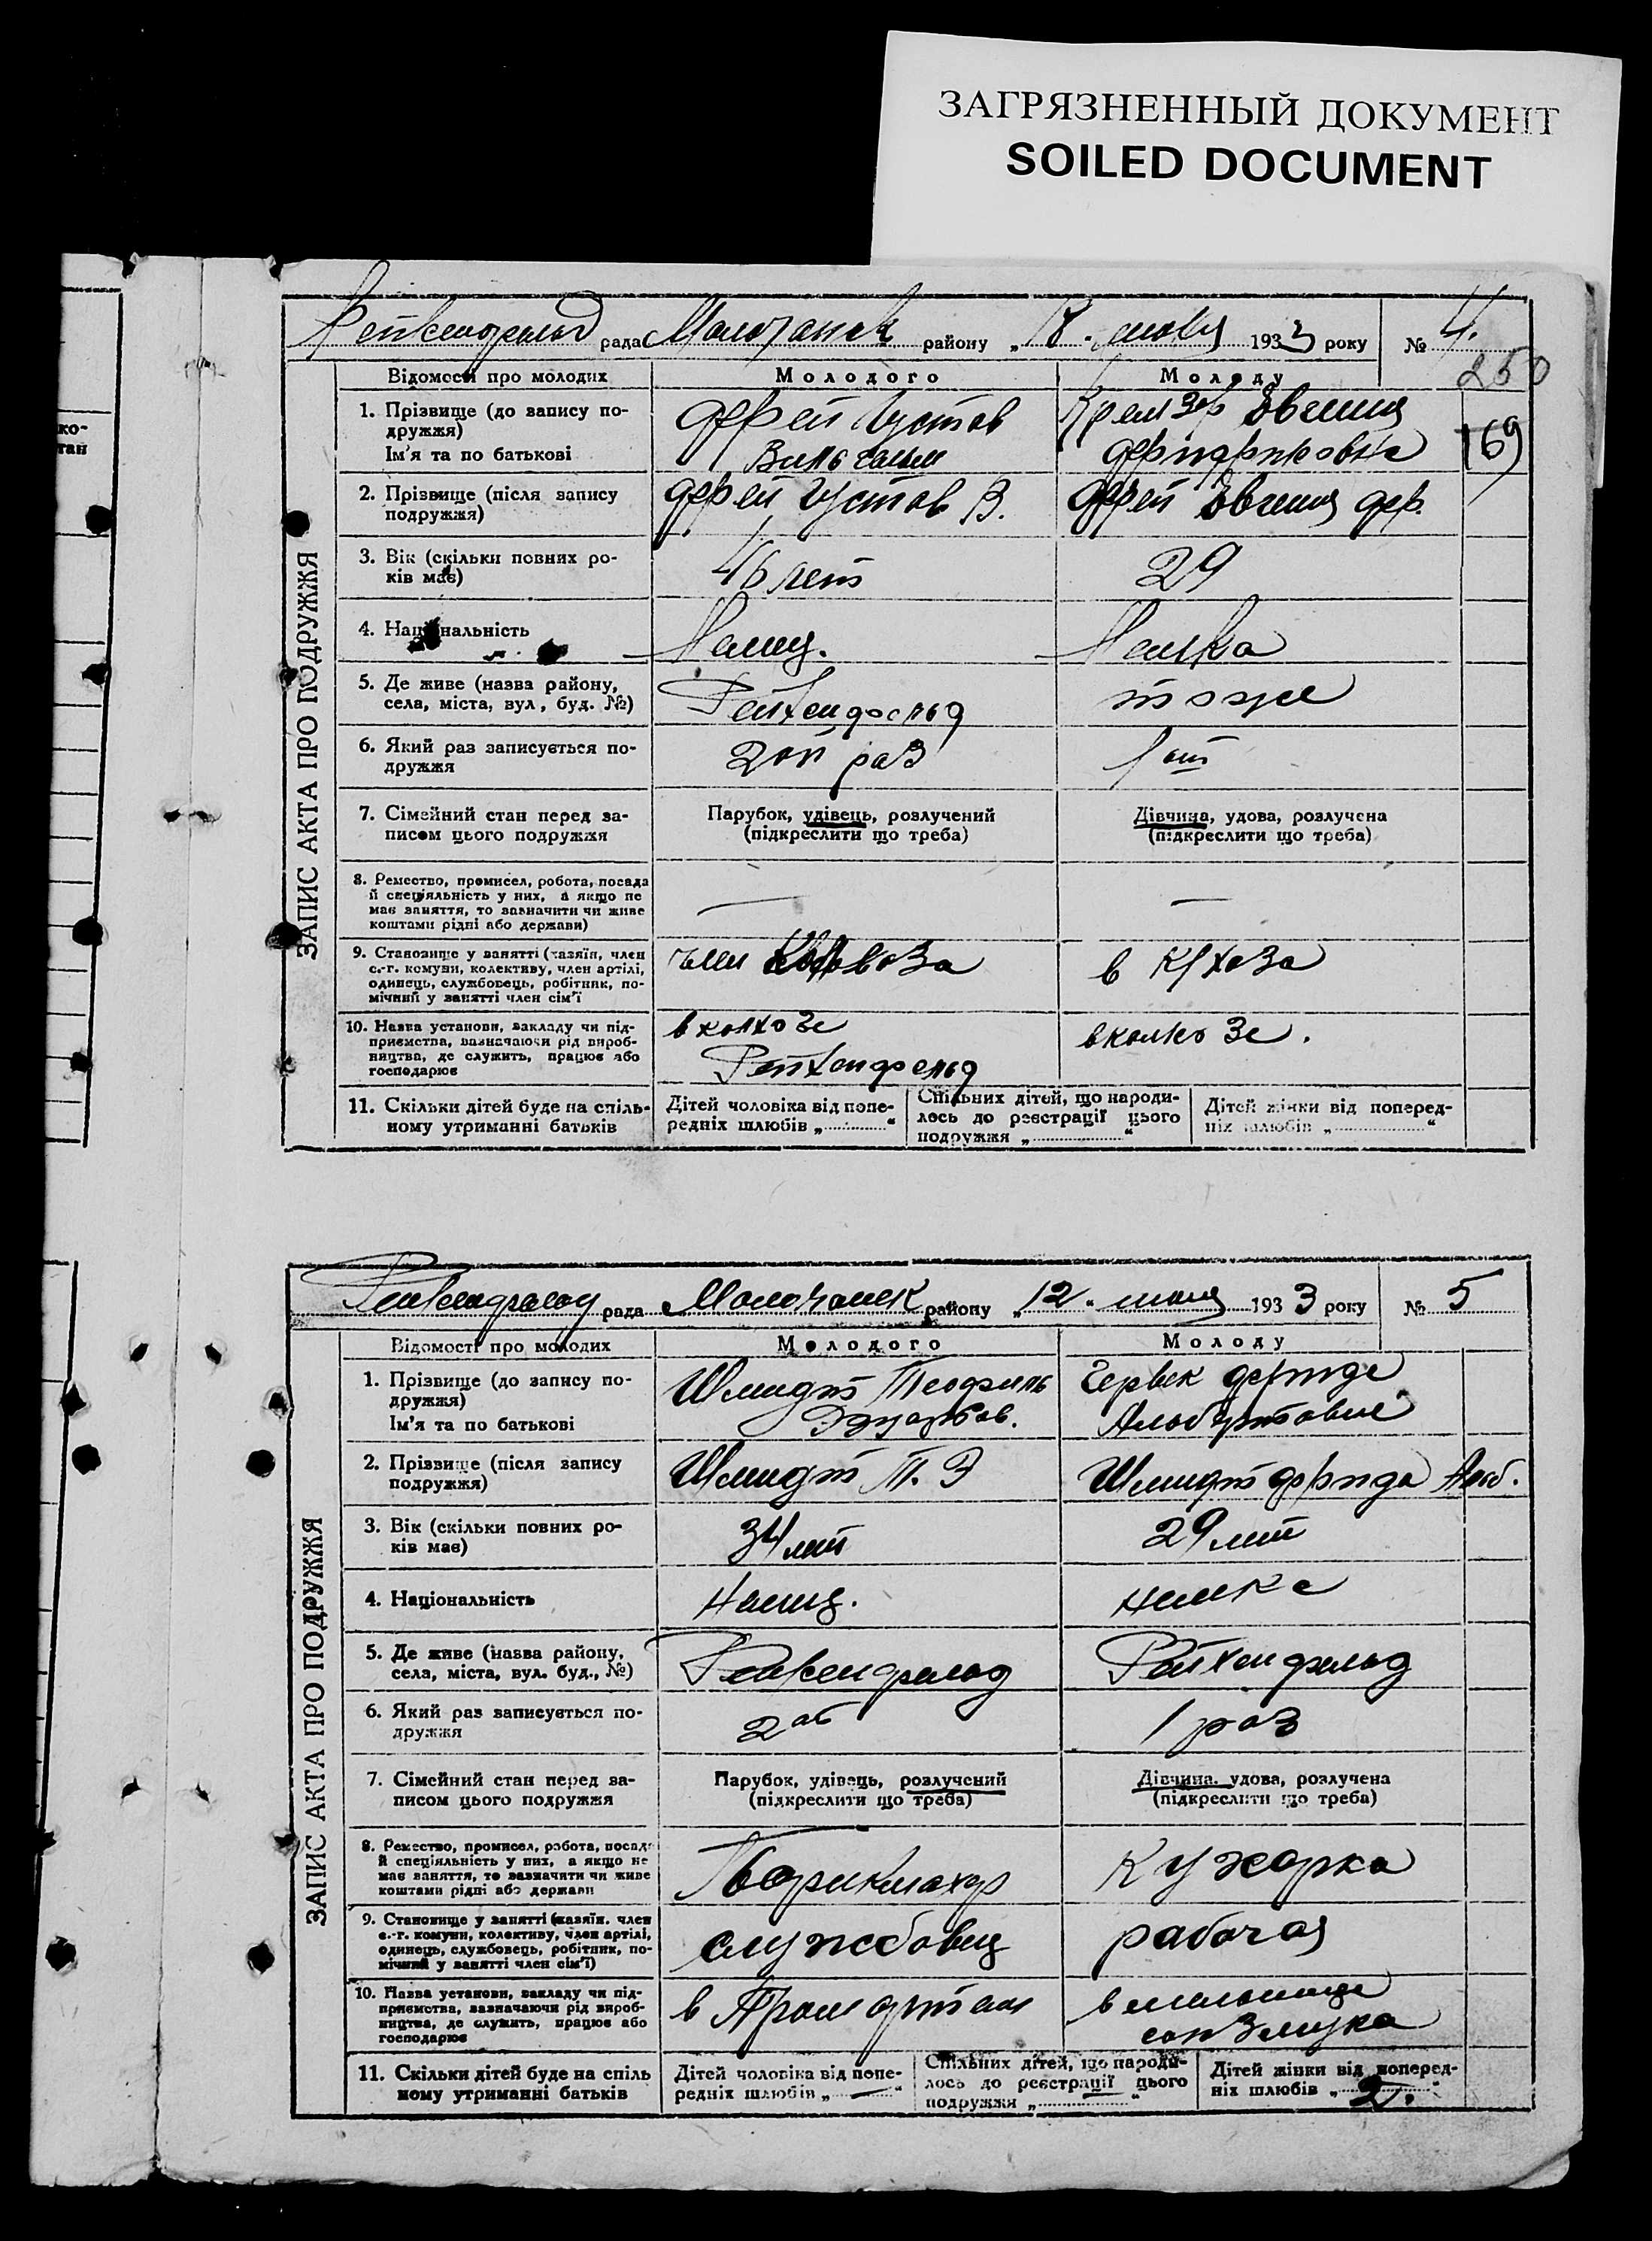 ЗАГРЯЗНЕННЫЙ ДОКУМЕНТ
SOILED DOCUMENT
рада Молочанск району „18“ 1933 року № 4.
250
169
ЗАПИС АКТА ПРО ПОДРУЖЖЯ
Відомості про молодих
Молодого
Молоду
1. Прізвище (до запису по-
дружжя)
Ім'я та по батькові
Фрей Густав
Вильгельм
Евгения
Фридриковна
2. Прізвище (після запису
подружжя)
Фрей Густав В.
Фрей Евгения Фр.
3. Вік (скільки повних ро-
ків має)
46 лет
29
4. Національність
Немец.
Немка
5. Де живе (назва району,
села, міста, вул., буд. №)
Рейхенфельд
тоже
6. Який раз записується по-
дружжя
2ой раз
1
7. Сімейний стан перед за-
писом цього подружжя
Парубок, удівець, розлучений
(підкреслити що треба)
Дівчина, удова, розлучена
(підкреслити що треба)
8. Ремество, промисел, робота, посада
й спеціяльність у них, а якщо не
має заняття, то зазначити чи живе
коштами рідні або держави)
—
—
9. Становище у занятті (хазяїн, член
с.-г. комуни, колективу, член артілі,
одинець, службовець, робітник, по-
мічний у занятті член сім'ї
член
в к/хоза
10. Назва установи, закладу чи під-
приємства, зазначаючи рід вироб-
ництва, де служить, працює або
господарює
в колхозе
Рейхенфельд
в колхозе.
11. Скільки дітей буде на спіль-
ному утриманні батьків
Дітей чоловіка від попе-
редніх шлюбів „ “
Спільних дітей, що народи-
лось до реєстрації цього
подружжя „ “
Дітей жінки від поперед-
ніх шлюбів „ “
Рейхенфельд рада Молочанск району „12“ 1933 року № 5
ЗАПИС АКТА ПРО ПОДРУЖЖЯ
Відомості про молодих
Молодого
Молоду
1. Прізвище (до запису по-
дружжя)
Ім'я та по батькові
Шмидт Теофиль
Эдуардов.
Альбертовне
2. Прізвище (після запису
подружжя)
Шмидт Т. Э
Шмидт Фрида Альб.
3. Вік (скільки повних ро-
ків має)
34 лет
29 лет
4. Національність
Немец.
немка
5. Де живе (назва району,
села, міста, вул. буд., №)
Рейхенфельд
Рейхенфельд
6. Який раз записується по-
дружжя
2ой
1 раз
7. Сімейний стан перед за-
писом цього подружжя
Парубок, удівець, розлучений
(підкреслити що треба)
Дівчина, удова, розлучена
(підкреслити що треба)
8. Ремество, промисел, робота, посада
й спеціяльність у них, а якщо не
має заняття, то зазначити чи живе
коштами рідні або держави
кухарка
9. Становище у занятті (хазяїн, член
с.-г. комуни, колективу, член артілі,
одинець, службовець, робітник, по-
мічний у занятті член сім'ї)
службовец
рабочая
10. Назва установи, закладу чи під-
приємства, зазначаючи рід вироб-
ництва, де служить, працює або
господарює
в Пром артели
в мельнице
союзмука
11. Скільки дітей буде на спіль
ному утриманні батьків
Дітей чоловіка від попе-
редніх шлюбів „—“
Спільних дітей, що народи-
лось до реєстрації цього
подружжя „ “
Дітей жінки від поперед-
ніх шлюбів „2.“